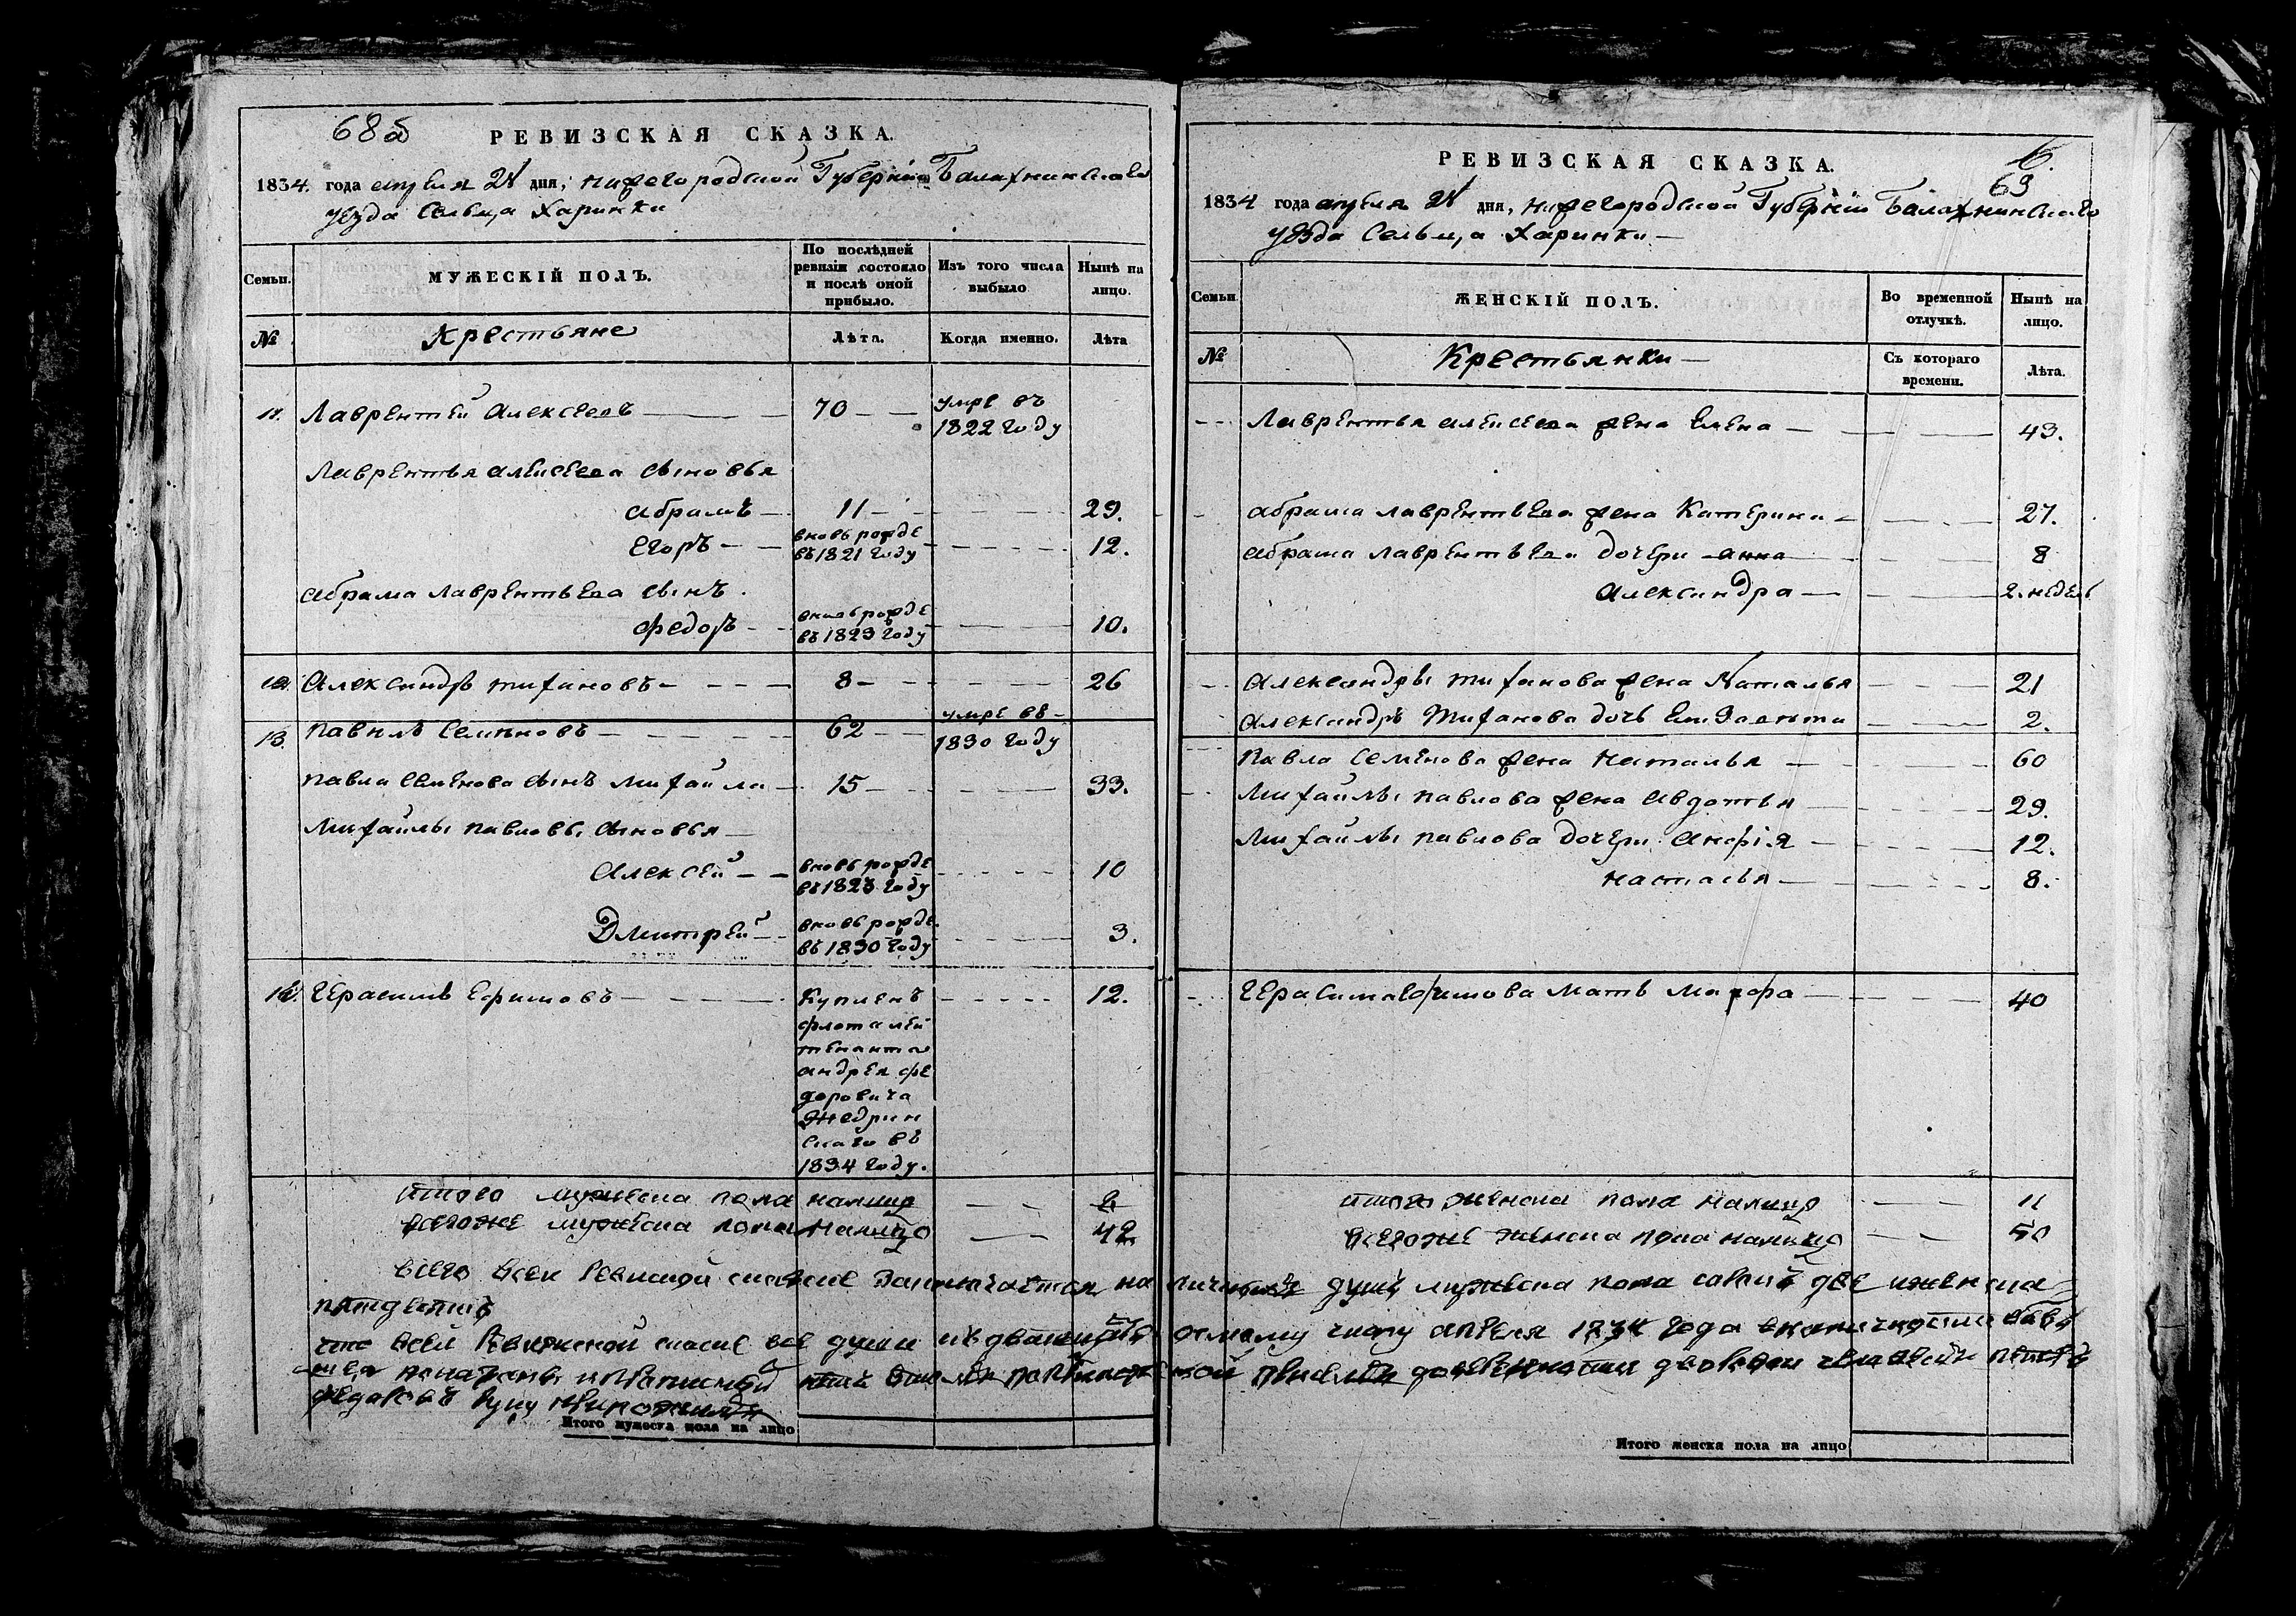 68 об
РЕВИЗСКАЯ СКАЗКА.
1834. года апреля 2 дня, нижегородской Губернии Балахнинскаго
уезда Сельца Харинки
Семьи.
МУЖЕСКІЙ ПОЛЪ.
По послѣдней ревизіи состояло и послѣ оной прибыло.
Изъ того числа выбыло
Нынѣ на лицо.
№
Крестьяне
Лѣта.
Когда именно.
Лѣта
11. Лаврентей Алексеевъ 70 умре въ 1822 году
Лаврентья алексеева сыновья
абрамъ 11 29.
Егоръ вновь рожде въ 1821 году 12.
абрама лаврентьева сынъ.
Федоръ вновь рожде въ 1823 году 10.
12. Александръ тихановъ 8 26
13. павилъ Семеновъ 62 умре въ 1830 году
павла Семенова сынъ михаила 15 33.
михайлы павловы сыновья
Алексей вновь рожде въ 1823 году 10
Дмитрей вновь рожде. въ 1830 году 3.
14. Герасимъ Ефимовъ Купленъ 12.
флота лей
тенанта
андрея фе
доровича
Жедрин
скаго въ
1834 году.
итого мужеска пола налицо
всегоже мужеска пола налицо 42
РЕВИЗСКАЯ СКАЗКА.
6.
69
1834 года апреля 2 дня, нижегородской Губерніи Балахнинскаго
уезда Сельца Харинки
Семьи
ЖЕНСКІЙ ПОЛЪ.
Во временной отлучкѣ.
Нынѣ на лицо.
№
Крестьянки
Съ котораго времени.
Лѣта.
Лаврентья алексеева жена Елена 43.
абрама лаврентьева жена Катерина 27.
абрама лаврентьева дочери анна 8
александра 2. недель
александры тиханова жена Наталья 21
александръ Тиханова дочь Елизавета 2.
Павла Семенова жена Наталья 60
михайлы павлова жена Авдотья 29.
михайлы павлова дочери 12.
наталья 8.
Герасима ефимова мать Марфа 40
итого женска пола налицо 11
всегоже женска пола налицо 50
всего всей Ревиской сказке наличныхъ душъ мужеска пола сорокъ две иженска
пятдесятъ
что всей Ревиской сказке все души числу апреля 1834 года
руку приложилъ
Итого мужеска пола на лицо
Итого женска пола на лицо